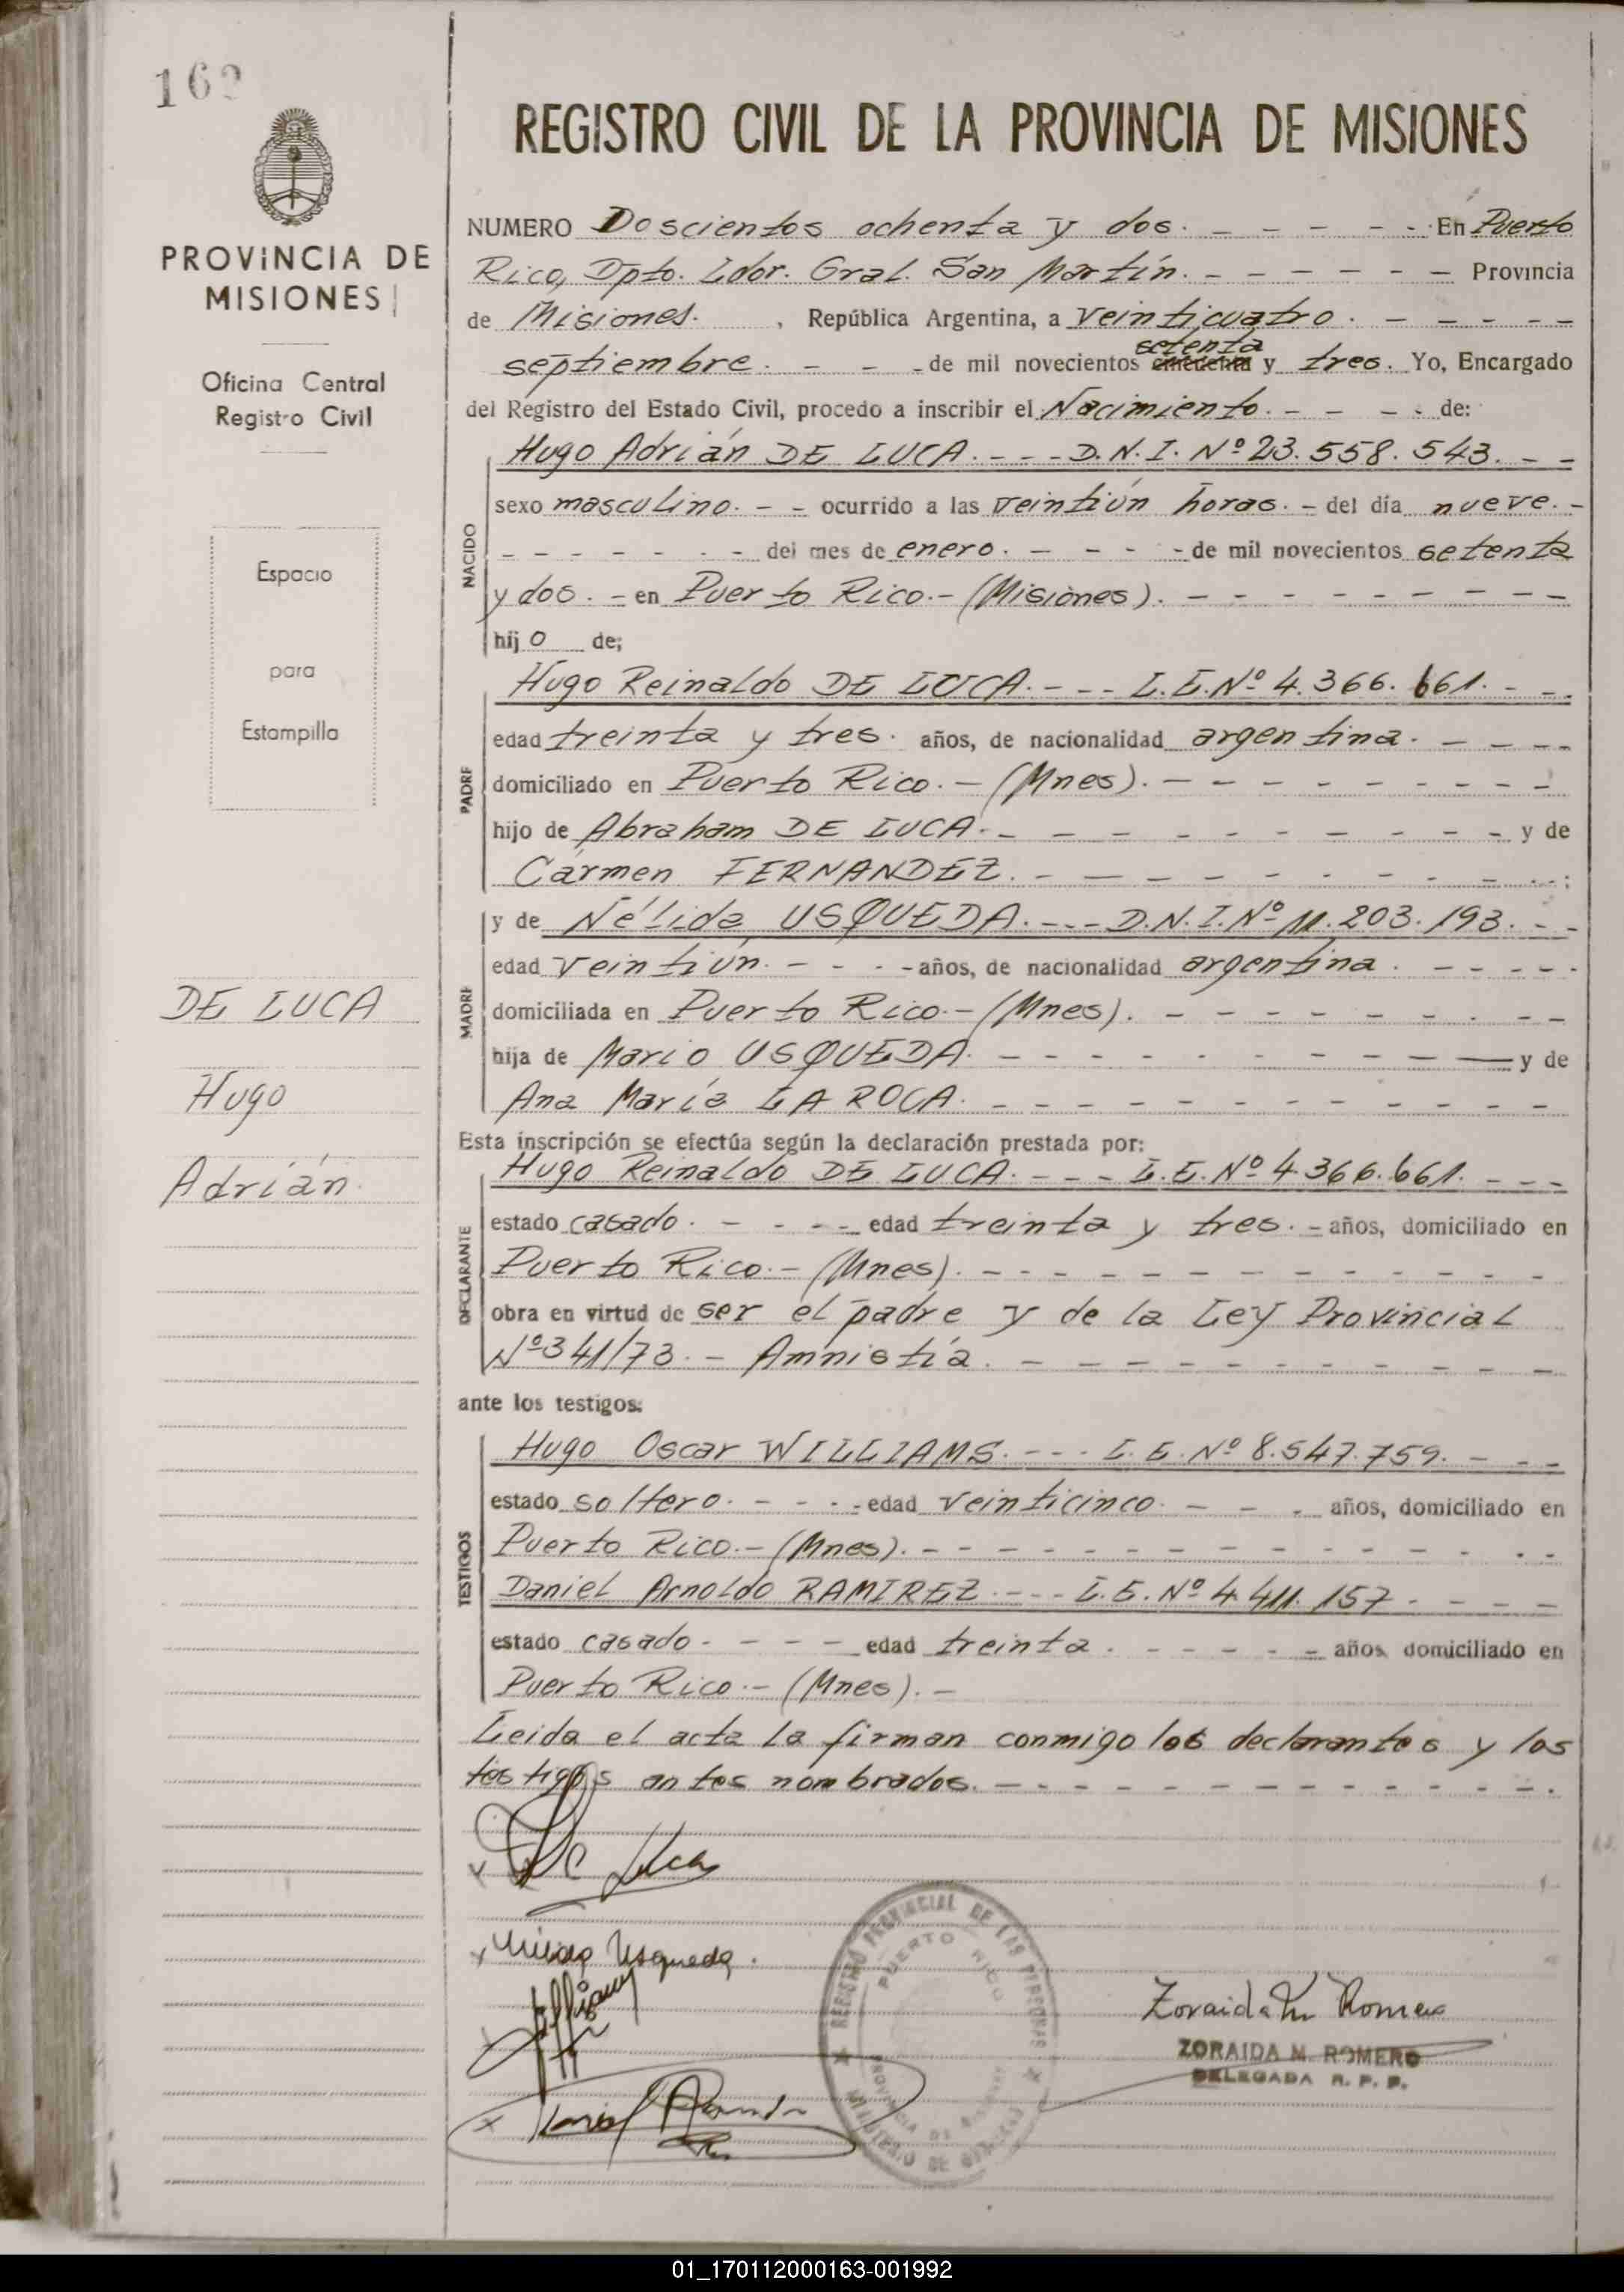 162
PROVINCIA DE
MISIONES
Oficina Central
Registro Civil
Espacio
para
Estampilla
DE LUCA
Hugo
Adrián
REGISTRO CIVIL DE LA PROVINCIA DE MISIONES
NUMERO Doscientos ochenta y dos. - - - - - En Puerto
Rico, Dpto. Ldor. Gral. San Martín. - - - - - - Provincia
de Misiones. , República Argentina, a veinticuatro. - - - - -
setenta
septiembre. - - - de mil novecientos cincuenta y tres. Yo, Encargado
del Registro del Estado Civil, procedo a inscribir el Nacimiento. - - - - de:
NACIDO
Hugo Adrián DE LUCA. - - - D.N.I. Nº 23.558.543. - -
sexo masculino. - - ocurrido a las veintiún horas. - del día nueve. -
- - - - - - - del mes de enero. - - - - de mil novecientos setenta
y dos. - en Puerto Rico.- (Misiones). - - - - - - - - -
hijo de;
PADRE
Hugo Reinaldo DE LUCA. - - - L.E.Nº 4.366.661. - - -
edad treinta y tres. años, de nacionalidad argentina. - - - -
domiciliado en Puerto Rico. - (Mnes). - - - - - - - - -
hijo de Abraham DE LUCA. - - - - - - - - - - y de
Carmen FERNANDEZ. - - - - - - - - - - ;
MADRE
y de Nélida USQUEDA. - - - D.N.I.Nº 11.203.193. - -
edad veintiún. - - - - años, de nacionalidad argentina. - - - - -
domiciliada en Puerto Rico.- (Mnes). - - - - - - - - -
hija de Mario USQUEDA. - - - - - - - - - - y de
Ana María LA ROCA. - - - - - - - - - - - -
Esta inscripción se efectúa según la declaración prestada por:
DECLARANTE
Hugo Reinaldo DE LUCA. - - - L.E.Nº 4.366.661. - - -
estado casado. - - - - edad treinta y tres. - años, domiciliado en
Puerto Rico.- (Mnes). - - - - - - - - - - - - -
obra en virtud de ser el padre y de la Ley Provincial
Nº341/73. - Amnistía. - - - - - - - - - - - -
ante los testigos:
TESTIGOS
Hugo Oscar WILLIAMS. - - - L.E. Nº 8.547.759. - - -
estado soltero. - - - - edad veinticinco. - - - años, domiciliado en
Puerto Rico.- (Mnes). - - - - - - - - - - - - - -
Daniel Arnoldo RAMIREZ. - - - L.E.Nº 4.411.157. - - - -
estado casado. - - - - edad treinta. - - - - - años domiciliado en
Puerto Rico.- (Mnes). -
Leida el acta la firman conmigo los declarantes y los
testigos antes nombrados. - - - - - - - - - - - - .
x De Luca
x Nélida Usqueda.
REGISTRO PROVINCIAL DE LAS PERSONAS
PUERTO RICO
PROVINCIA DE MISIONES
MINISTERIO DE GOBIERNO
Zoraida M Romero
ZORAIDA M. ROMERO
DELEGADA R. P. P.
01_170112000163-001992